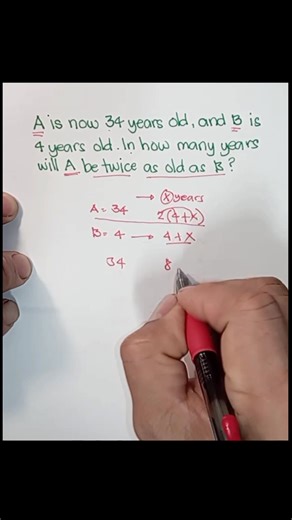 A is now 34 years old, and B is
4 years old. In how many years
will A be twice as old as B?
→ x years
A = 34 2(4+x)
B = 4 → 4+x
34 8